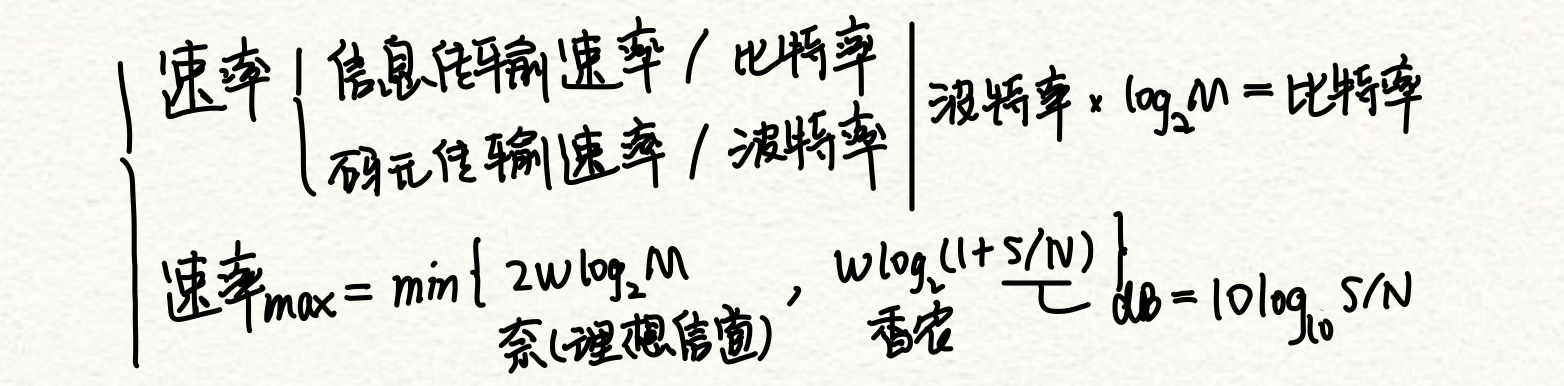 速率 信息传输速率 / 比特率
码元传输速率 / 波特率
波特率 × log₂M = 比特率
速率max = min{ 2Wlog₂M , Wlog₂(1+S/N) } dB = 10log₁₀ S/N
奈(理想信道) 香农